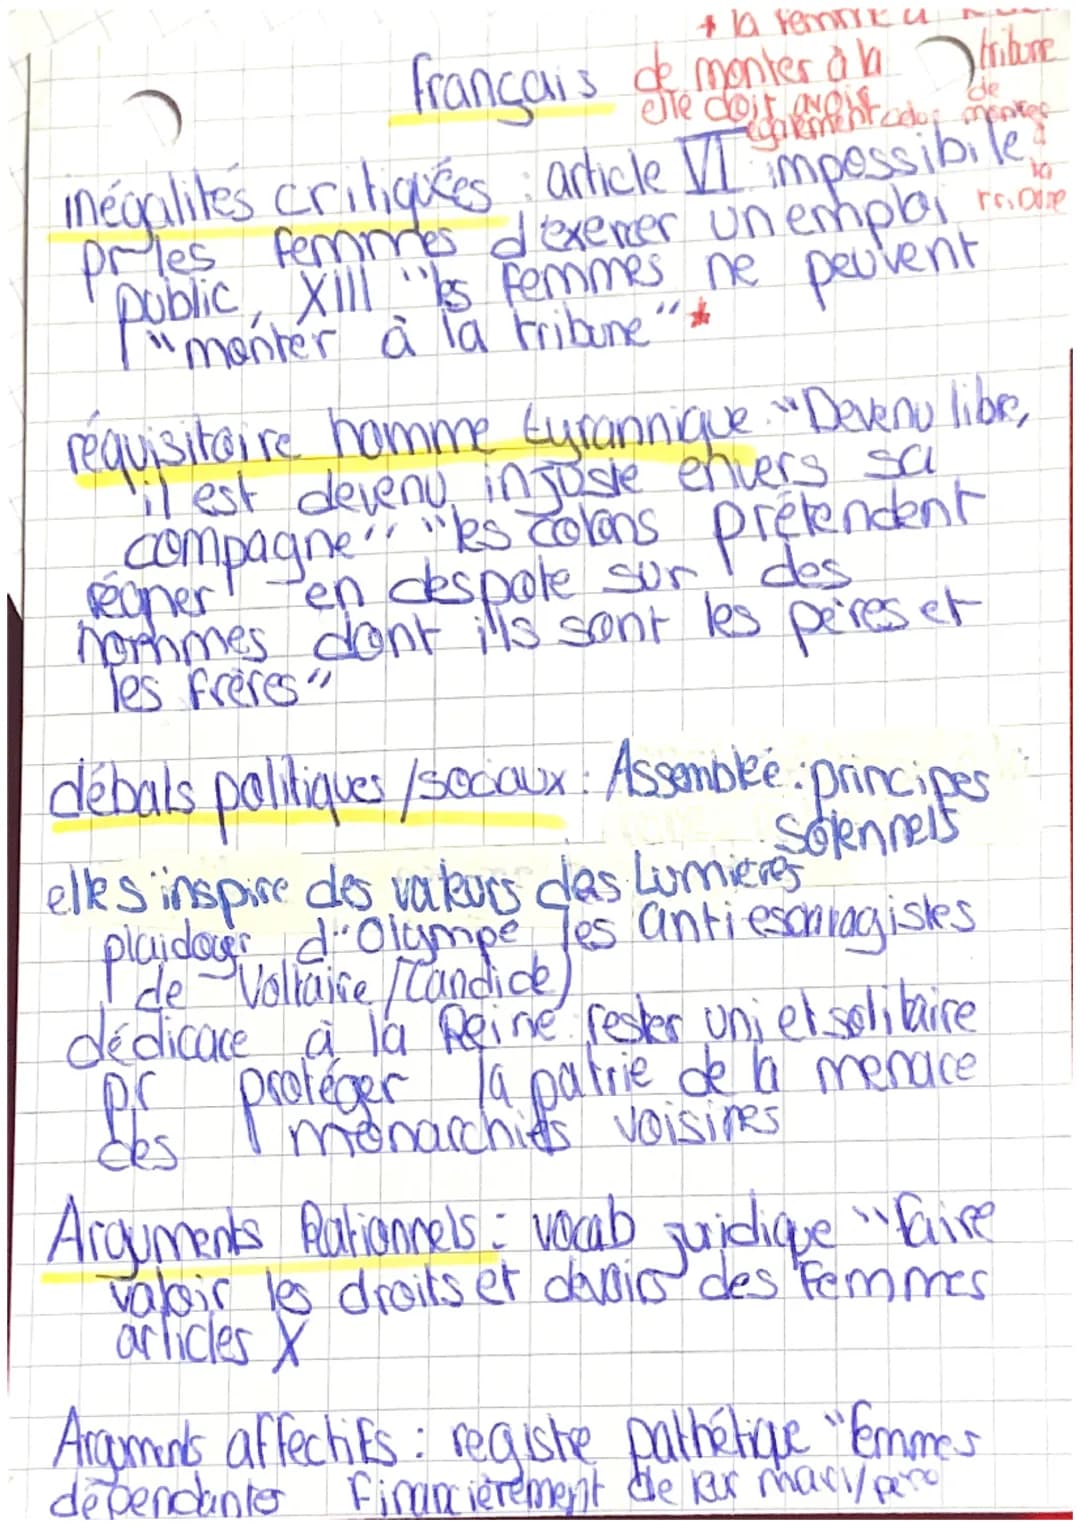 * la femme a
Français de monter à la tribune
elle doit avoir
également celui de monter à la tribune
inégalités critiquées : article VI impossibile
pr les femmes d'exercer un emploi
public, XIII "les femmes ne peuvent
"monter à la tribune" *
réquisitoire homme tyrannique : "Devenu libre,
il est devenu injuste envers sa
compagne" "les colons prétendent
régner en despote sur des
hommes dont ils sont les pères et
les frères"
débats politiques/sociaux : Assemblée : principes
solennels
elle s'inspire des valeurs des Lumières
plaidoyer d'Olympe, les antiesclavagistes
de Voltaire (Candide)
dédicace à la Reine : rester uni et solitaire
pr protéger la patrie de la menace
des monarchies voisines
Arguments Rationnels : vocab juridique "faire
valoir les droits et devoirs des Femmes
articles X
Arguments affectifs : registre pathétique "femmes
dépendantes financièrement de leur mari/père